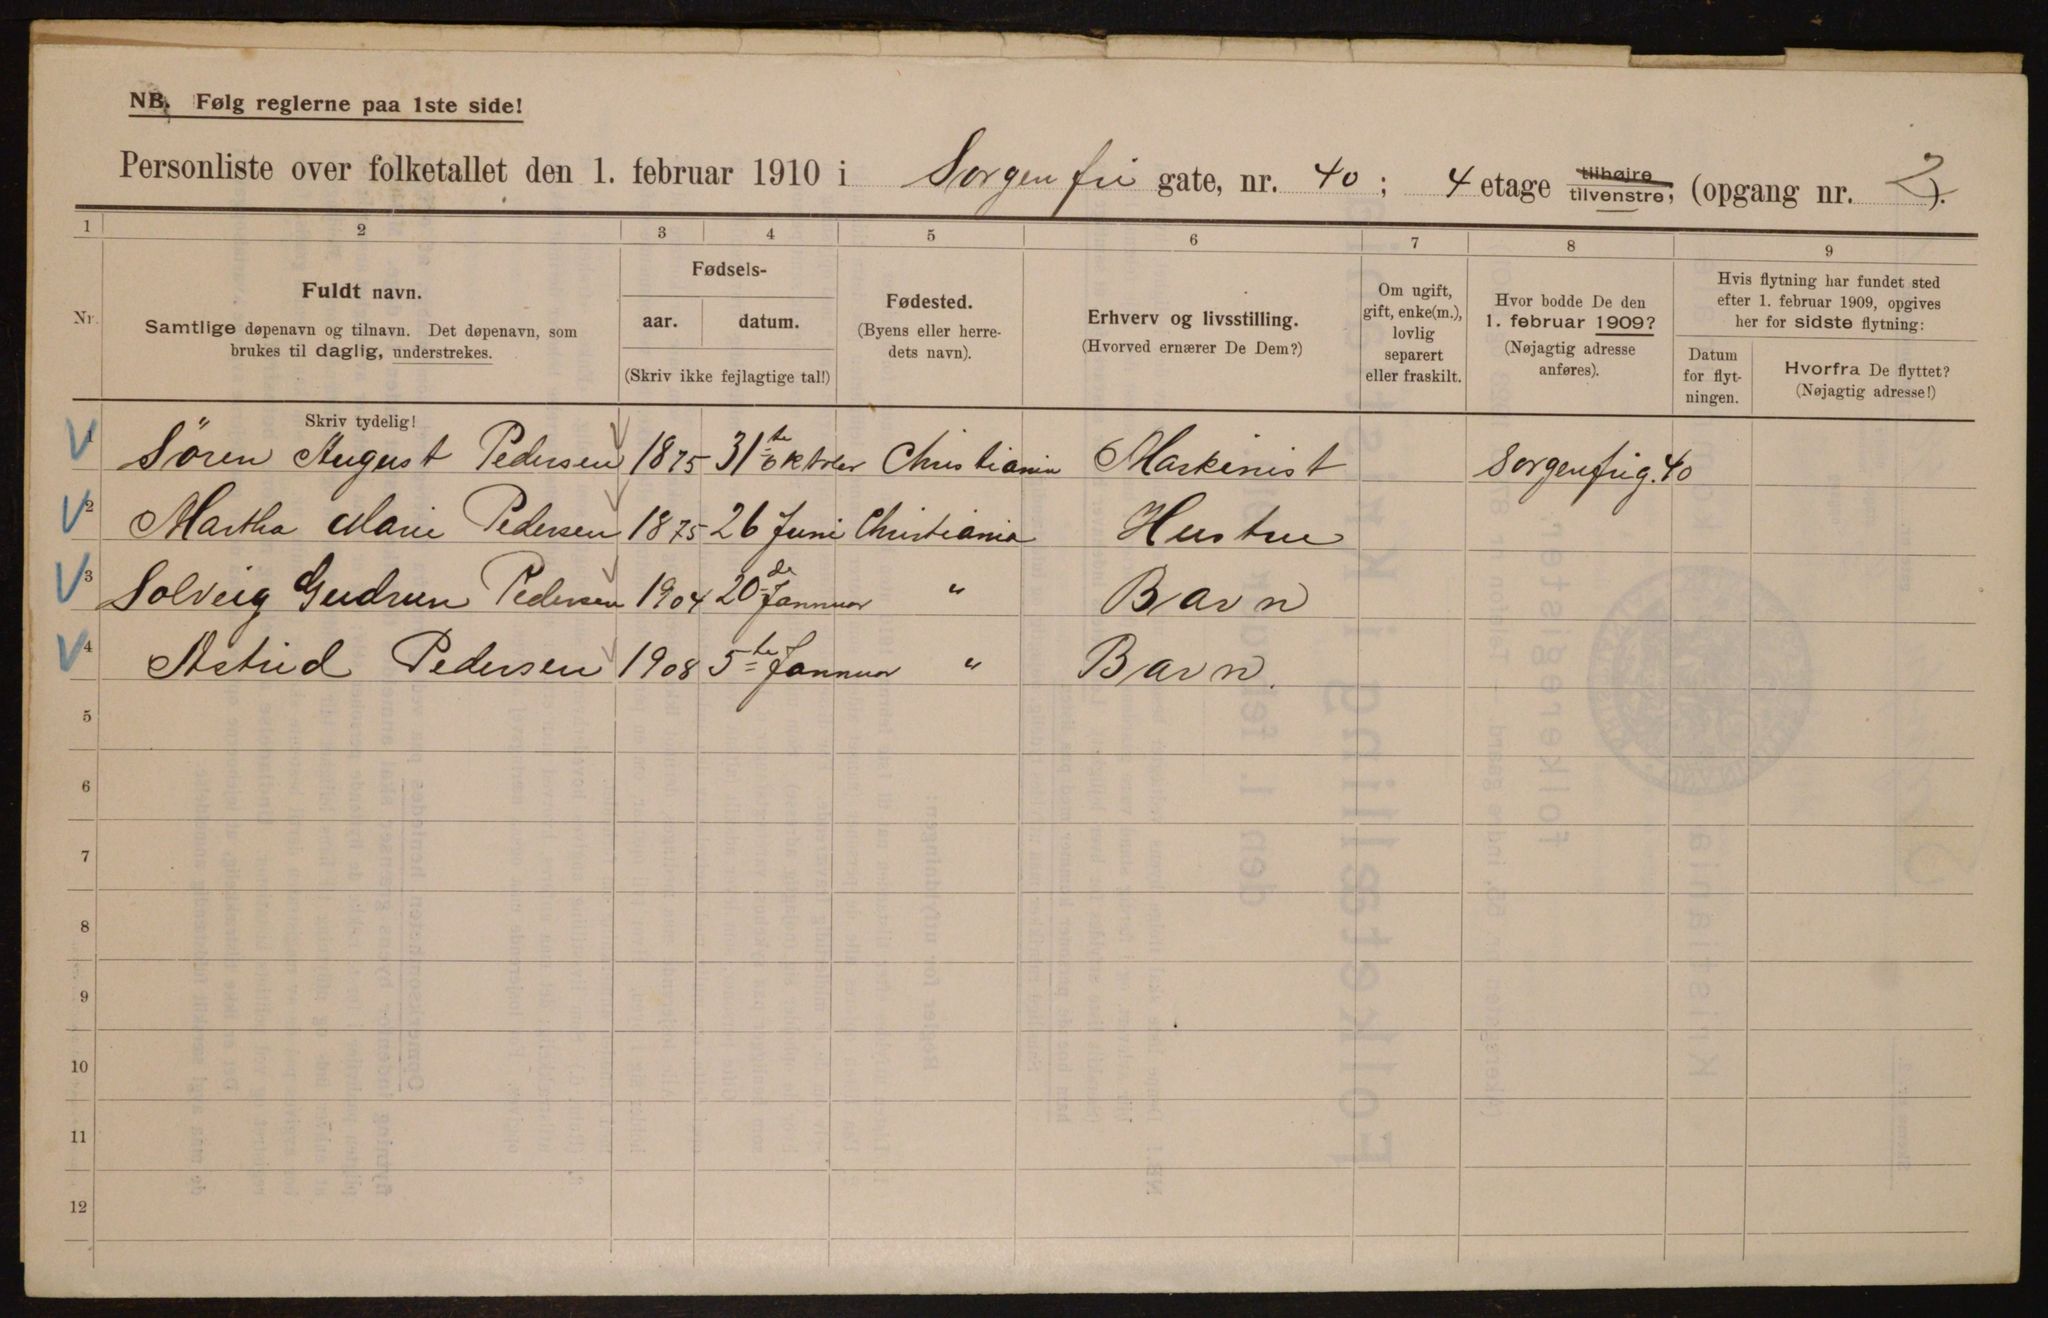 NB. Følg reglerne paa 1ste side!
Personliste over folketallet den 1. februar 1910 i Sorgenfri gate, nr. 40; 4 etage tilhøire tilvenstre; (opgang nr. 2).
1 2 3 4 5 6 7 8 9
Nr.
Fuldt navn.
Samtlige døpenavn og tilnavn. Det døpenavn, som
brukes til daglig, understrekes.
Fødsels-
aar. datum.
(Skriv ikke fejlagtige tal!)
Fødested.
(Byens eller herre-
dets navn).
Erhverv og livsstilling.
(Hvorved ernærer De Dem?)
Om ugift,
gift, enke(m.),
lovlig
separert
eller fraskilt.
Hvor bodde De den
1. februar 1909?
(Nøjagtig adresse
anføres).
Hvis flytning har fundet sted
efter 1. februar 1909, opgives
her for sidste flytning:
Datum
for flyt-
ningen.
Hvorfra De flyttet?
(Nøjagtig adresse!)
Skriv tydelig!
1 Sören August Pedersen 1875 31te Oktober Christiania Maskinist Sorgenfrig. 40
2 Martha Marie Pedersen 1875 26 Juni Christiania Hustru
3 Solveig Gudrun Pedersen 1904 20de Jannuar " Barn
4 Astrid Pedersen 1908 5te Jannuar " Barn.
5
6
7
8
9
10
11
12